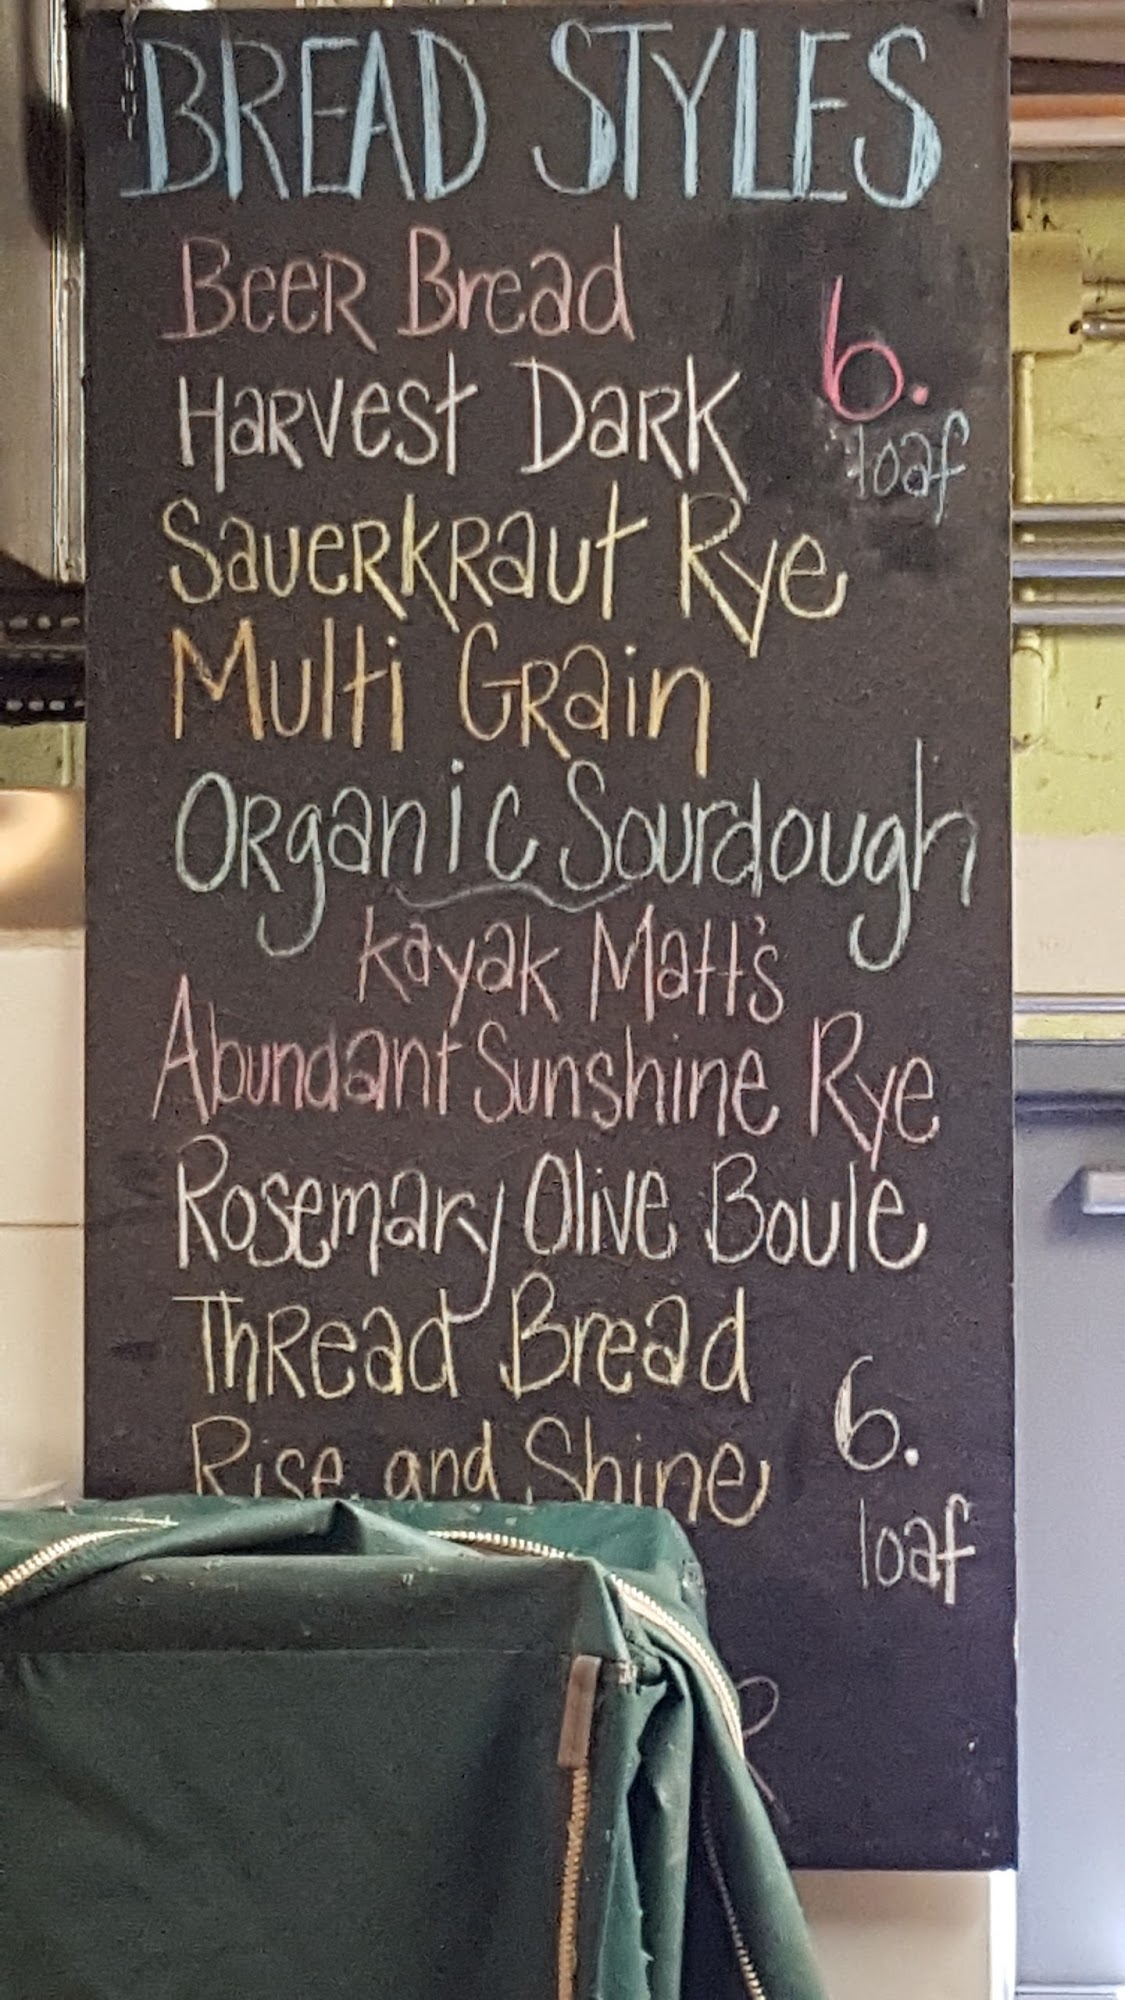 BREAD STYLES
Beer Bread
6.
Harvest Dark
loaf
Sauerkraut Rye
Multi Grain
Organic Sourdough
Kayak Matt's
Abundant Sunshine Rye
Rosemary Olive Boule
Thread Bread
6.
Rise and Shine
loaf